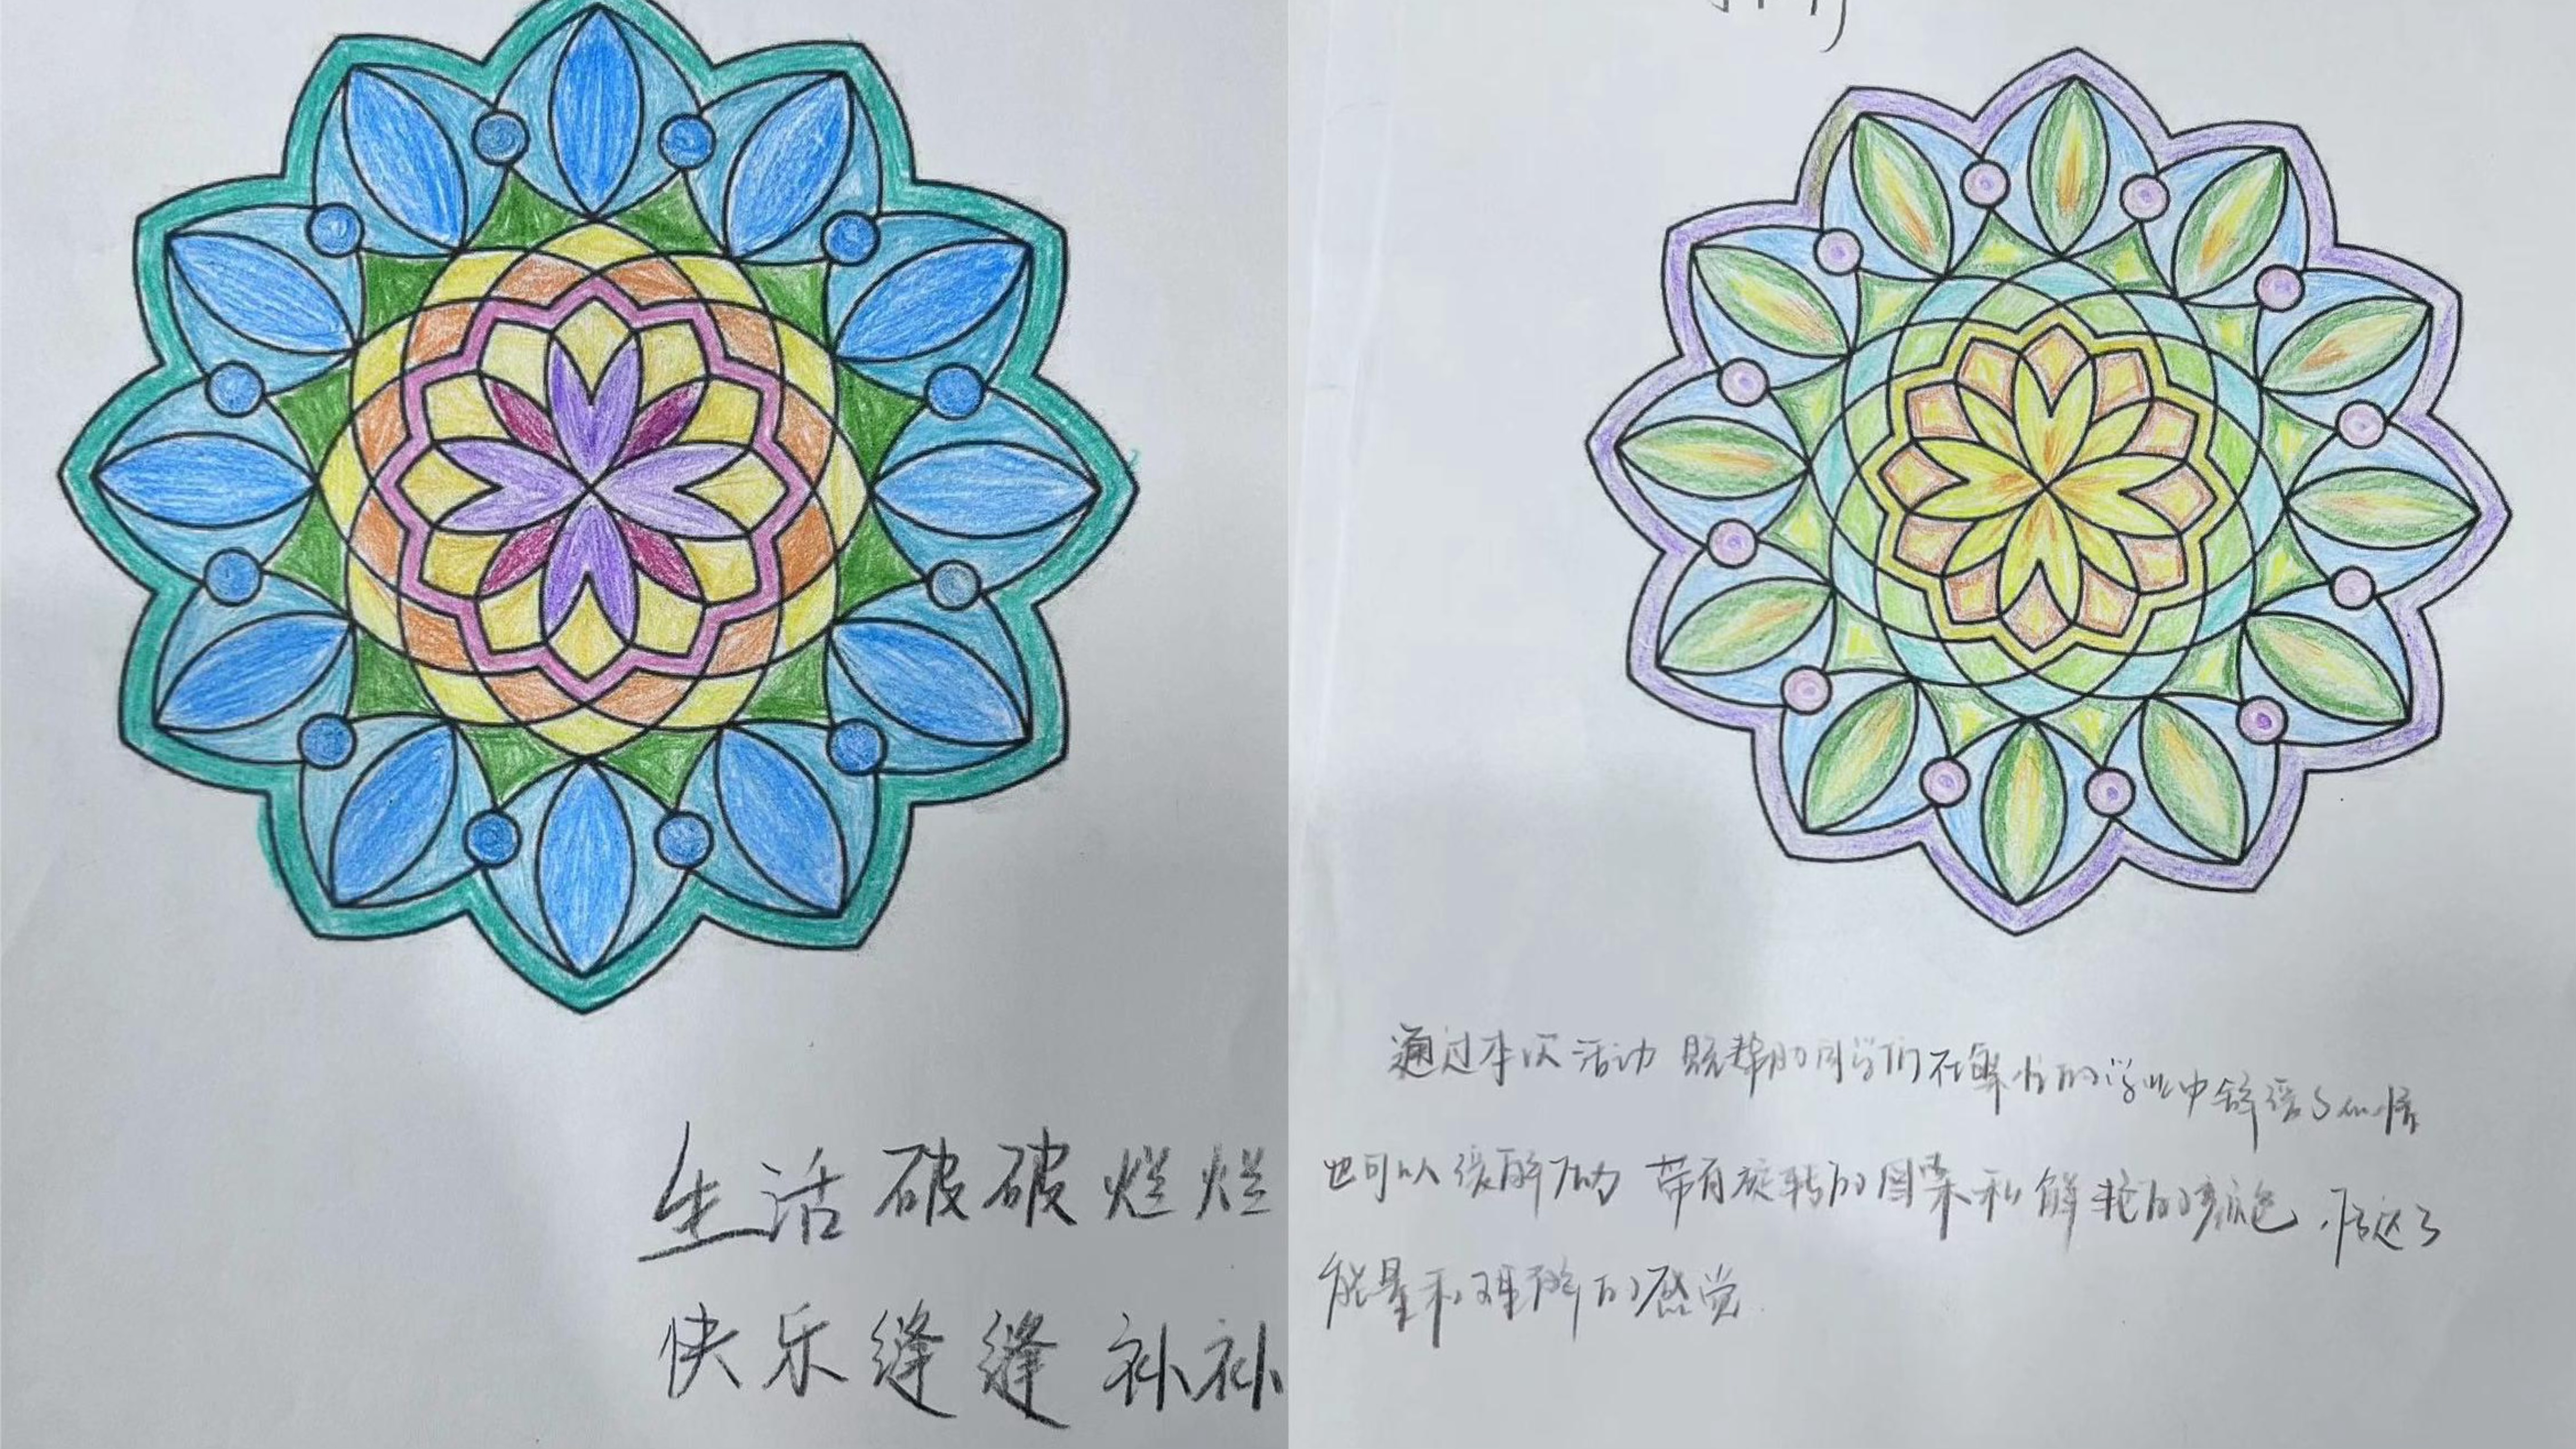 生活破破烂烂
快乐缝缝补补
通过本次活动 既帮助同学们在繁忙的学业中舒缓了心情
也可以缓解压力 带有旋转的图案和鲜艳的颜色,传达了
能量和理解的感觉.